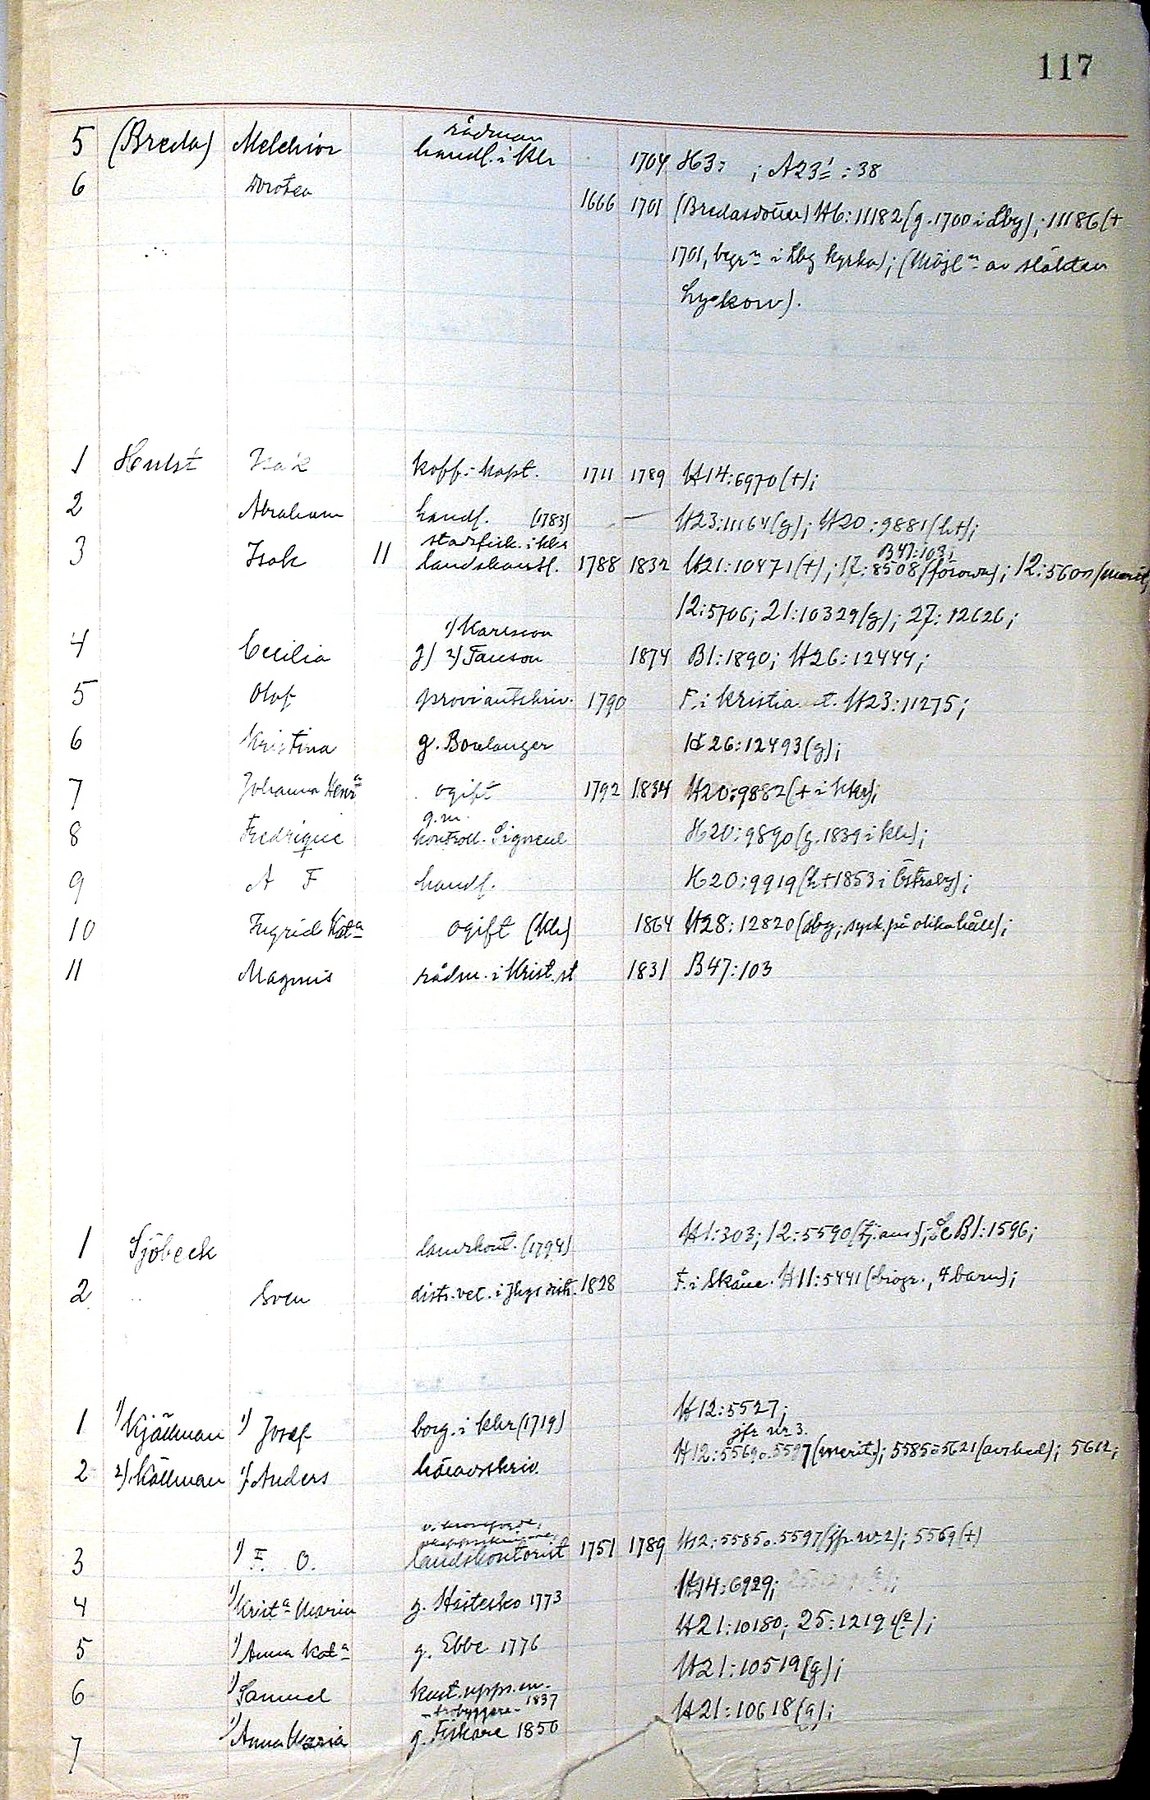 117
rådman
5 (Breda) Melchior handl. i Klr 1704 H3: ; A23: 38
6 Dorotea 1666 1701 (Bredasdotter) H6: 11182 (g. 1700 i Lby); 11186 (+
1701, begr.n i Lby kyrka); (Möjl.n av släkten
Lyckow).
1 Hulst Isak koff.-kapt. 1711 1789 H14: 6970 (+);
2 Abraham handl. (1783) — H23: 11164 (g); H20: 9881 (h+);
stadsfisk. i Klr B47: 103;
3 Isak 11 landskansl. 1788 1832 H21: 10471 (+); 12: 8508 ; 12: 5600
12: 5706; 21: 10329 (g); 27: 12626;
1) Karlsson
4 Cecilia g) 2) Fanson 1874 B1: 1890; H26: 12444;
5 Olof proviantskriv. 1790 F. i Kristia st. H23: 11275;
6 Kristina g. Boulanger H26: 12493 (g);
7 Johanna Henr.a ogift 1792 1834 H20: 9882 (+ i Klr);
g. m.
8 Fredrique kontroll. Signeul H20: 9890 (g. 1839 i Klr);
9 A F handl. H20: 9919 (h+ 1853 i );
10 Ingrid Kat.a ogift (Klr) 1864 H28: 12820 (dbg, sysk. på olika håll);
11 Magnus rådm. i Krist. st 1831 B47: 103
1 Sjöbeck landskont. (1794) H1: 303; 12: 5590 (tj:ans); Se B1: 1596;
2 Sven distr. vet. i distr. 1828 F. i Skåne. H11: 5441 (biogr., 4 barn);
1 1) Kjällman 1) Josef borg. i Klr (1719) H12: 5527;
jfr nr 3.
2 2) Källman 1) Anders häradsskriv. H12: 5569 o. 5597 (merit); 5585 o 5621 (avsked); 5612;
v. kronofogde,
3 1) F. O. landskontorist 1751 1789 H12: 5585 o. 5597 (jfr nr 2); 5569 (+)
H14: 6929;
4 1) Krist.a Maria g. 1773
H21: 10180; 25: 12194
5 1) Anna Kat.a g. Ebbe 1776
H21: 10519 (g);
6 1) Samuel kust.upps.m.
- brobyggare - 1837
H21: 10618 (g);
7 1) Anna Maria g. Fiskare 1850